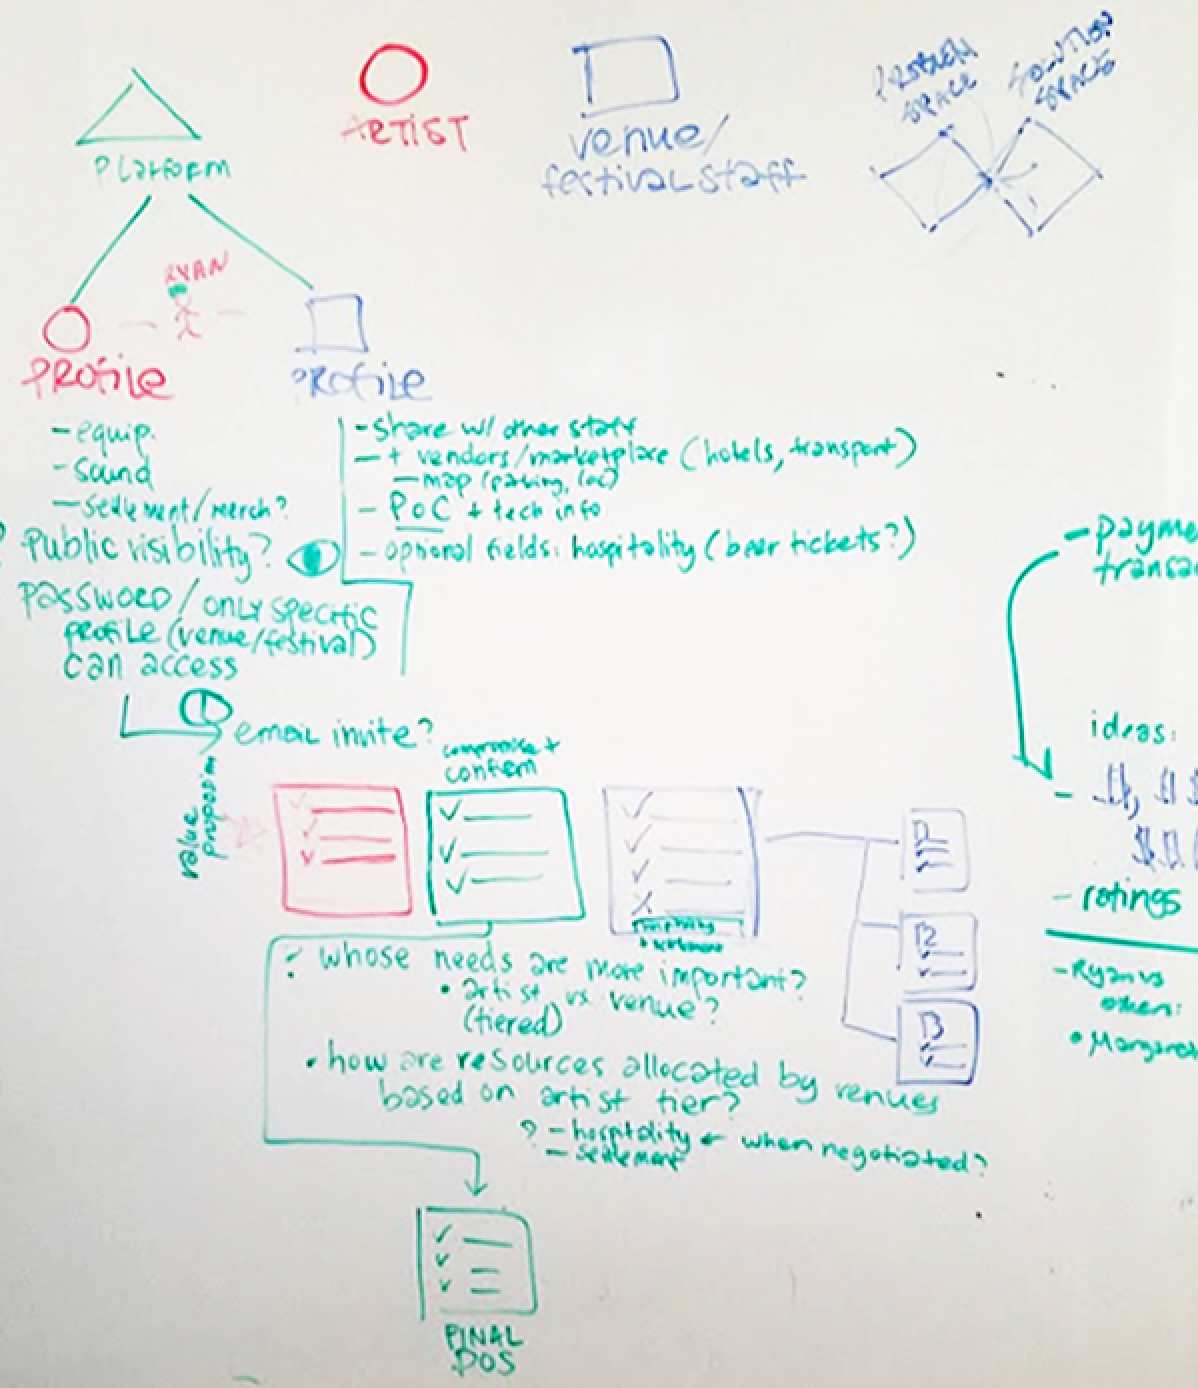 PLATFORM
ARTIST
venue/
festival staff
PROBLEM
SPACE
SOLUTION
SPACE
RYAN
PROFILE
PROFILE
- equip.
- sound
- settlement/merch?
? Public visibility?
PASSWORD / only specific
profile (venue/festival)
can access
- share w/ other staff
- + vendors/marketplace (hotels, transport)
- map (parking, loc)
- PoC + tech info
- optional fields: hospitality (beer tickets?)
email invite?
value
proposition
compromise +
confirm
hospitality
+ settlement
P1
P2
P3
? whose needs are more important?
• artist vs venue?
(tiered)
• how are resources allocated by venues
based on artist tier?
? - hospitality ← when negotiated?
- settlement
FINAL
DOS
- payme
transac
ideas:
- $, $$
$$$
- ratings
- Ryan vs
other:
• Margaret